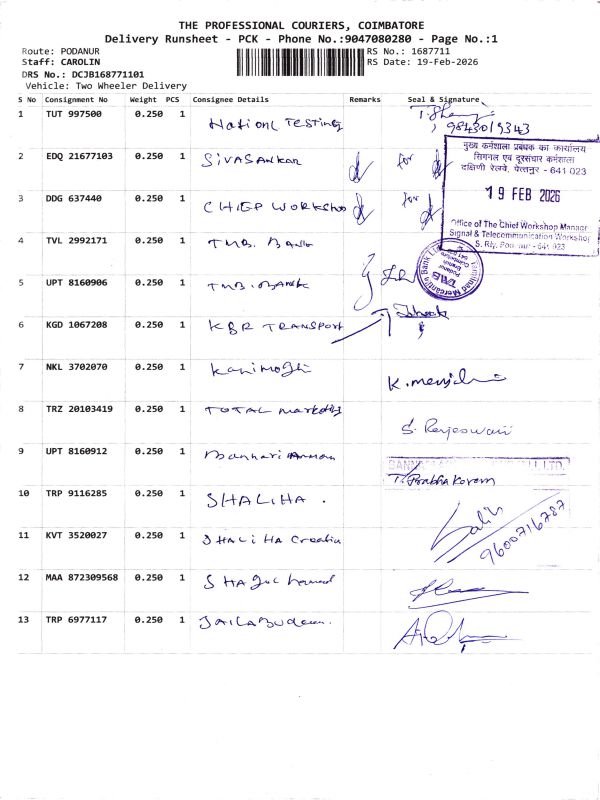 THE PROFESSIONAL COURIERS, COIMBATORE
Delivery Runsheet - PCK - Phone No.:9047080280 - Page No.:1
Route: PODANUR
RS No.: 1687711
Staff: CAROLIN
RS Date: 19-Feb-2026
DRS No.: DCJB168771101
Vehicle: Two Wheeler Delivery
S No Consignment No Weight PCS Consignee Details Remarks Seal & Signature
1 TUT 997500 0.250 1 National Testing
9843019343
2 EDQ 21677103 0.250 1 Sivasankar for
मुख्य कर्मशाला प्रबंधक का कार्यालय
सिगनल एवं दूरसंचार कर्मशाला
दक्षिण रेलवे, पोत्तनूर - 641 023
19 FEB 2026
Office of The Chief Workshop Manager
Signal & Telecommunication Workshop
S. Rly, Podanur - 641 023
3 DDG 637440 0.250 1 CHIEF WORKSHOP for
4 TVL 2992171 0.250 1 TMB. Bank
Tamilnad Mercantile Bank Ltd
TMB
5 UPT 8160906 0.250 1 TMB. BANK
6 KGD 1067208 0.250 1 KBR TRANSPORT
7 NKL 3702070 0.250 1 Kanimozhi
8 TRZ 20103419 0.250 1 TOTAL marketing
S. Rajeswari
9 UPT 8160912 0.250 1 Bannari Amman
T. Prabhakaran
10 TRP 9116285 0.250 1 SHALIHA .
Salih
9600716787
11 KVT 3520027 0.250 1 SHALIHA Creation
12 MAA 872309568 0.250 1
13 TRP 6977117 0.250 1